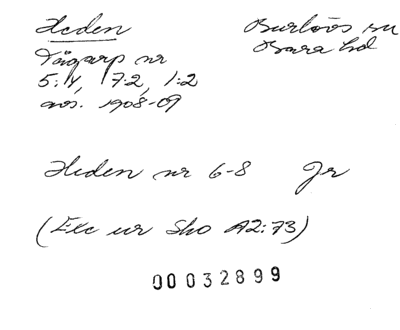 Heden
Burlövs sn
Bara hd
Tågarp nr
5:4, 7:2, 1:2
avs. 1908-09
Heden nr 6-8 Jr
(Exc ur Sho A2:73)
00032899